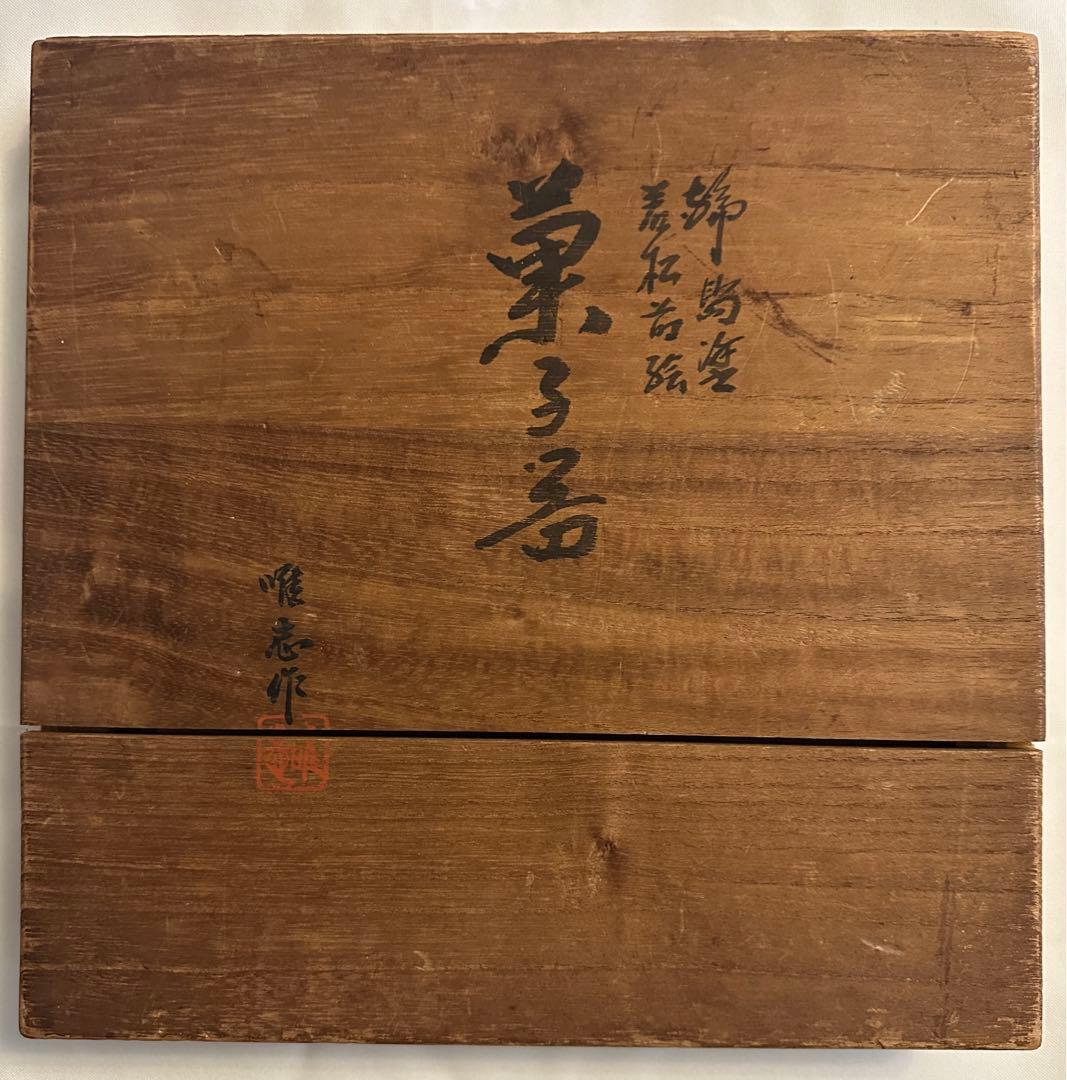 輪島塗
若松蒔絵
菓子器
唯志作